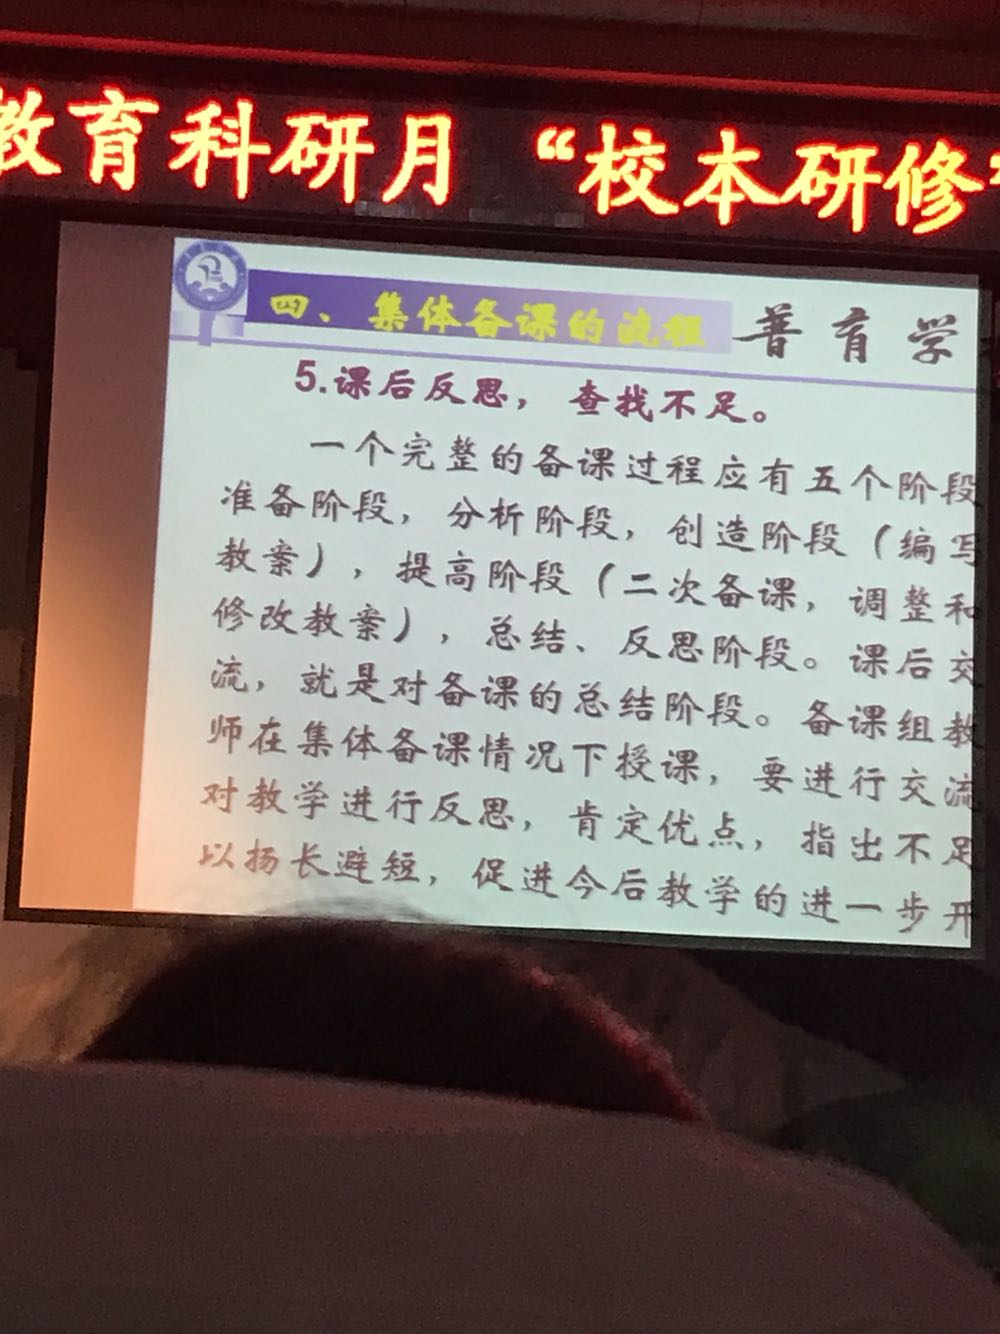 教育科研月 “校本研修
四、集体备课的流程
普育学
5.课后反思，查找不足。
一个完整的备课过程应有五个阶段
准备阶段，分析阶段，创造阶段（编写
教案），提高阶段（二次备课，调整和
修改教案），总结、反思阶段。课后交
流，就是对备课的总结阶段。备课组教
师在集体备课情况下授课，要进行交流
对教学进行反思，肯定优点，指出不足
以扬长避短，促进今后教学的进一步开